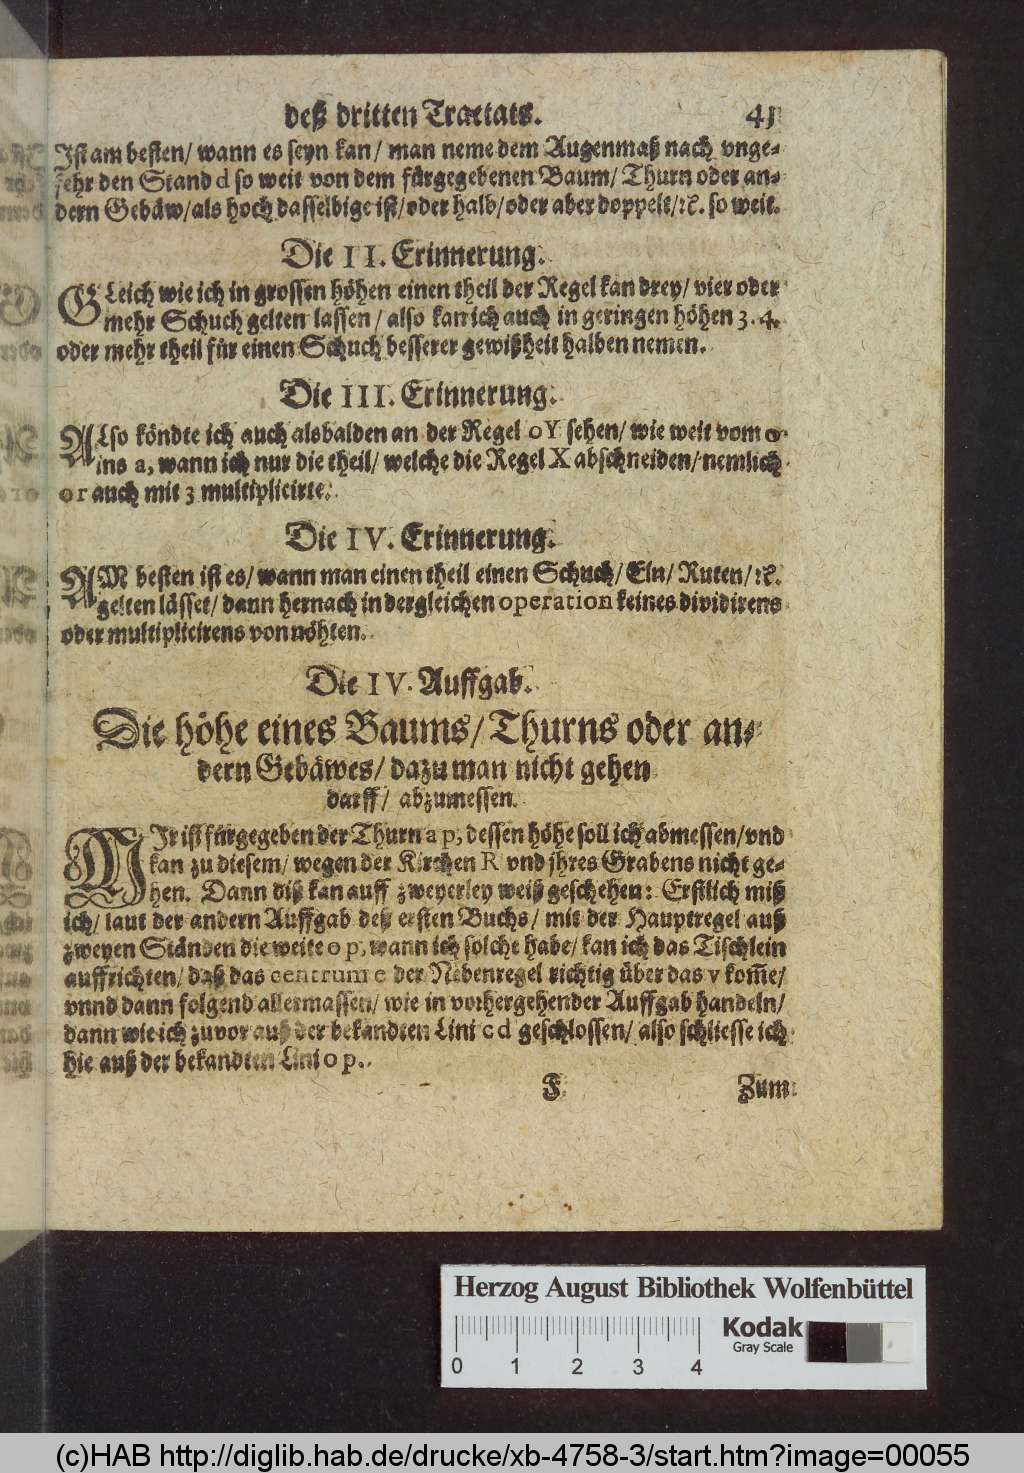 deß dritten Tractats. 41
Ist am besten/ wann es seyn kan/ man neme dem Augenmaß nach vnge-
fehr den Stand d so weit von dem fürgegebenen Baum/ Thurn oder an-
dern Gebäw/ als hoch dasselbige ist/ oder halb/ oder aber doppelt/ ꝛc. so weit.
Die II. Erinnerung.
GLeich wie ich in grossen höhen einen theil der Regel kan drey/ vier oder
mehr Schuch gelten lassen/ also kan ich auch in geringen höhen 3. 4.
oder mehr theil für einen Schuch besserer gewißheit halben nemen.
Die III. Erinnerung.
ALso köndte ich auch alsbalden an der Regel o Y sehen/ wie weit vom o
ins a, wann ich nur die theil/ welche die Regel X abschneiden/ nemlich
o r auch mit 3 multiplicirte.
Die IV. Erinnerung.
AM besten ist es/ wann man einen theil einen Schuch/ Eln/ Ruten/ ꝛc.
gelten lässet/ dann hernach in dergleichen operation keines dividirens
oder multiplicirens von nöhten.
Die IV. Auffgab.
Die höhe eines Baums/ Thurns oder an-
dern Gebäwes/ dazu man nicht gehen
darff/ abzumessen.
MIr ist fürgegeben der Thurn a p, dessen höhe soll ich abmessen/ vnd
kan zu diesem/ wegen der Kirchen R vnd jhres Grabens nicht ge-
hen. Dann diß kan auff zweyerley weiß geschehen: Erstlich miß
ich/ laut der andern Auffgab deß ersten Buchs/ mit der Hauptregel auß
zweyen Ständen die weite o p, wann ich solche habe/ kan ich das Tischlein
auffrichten/ daß das centrum e der Nebenregel richtig über das v kom̃e/
vnnd dann folgend allermassen/ wie in vorhergehender Auffgab handeln/
dann wie ich zuvor auß der bekandten Lini c d geschlossen/ also schliesse ich
hie auß der bekandten Lini o p.
F Zum
Herzog August Bibliothek Wolfenbüttel
0 1 2 3 4
Kodak
Gray Scale
(c)HAB http://diglib.hab.de/drucke/xb-4758-3/start.htm?image=00055